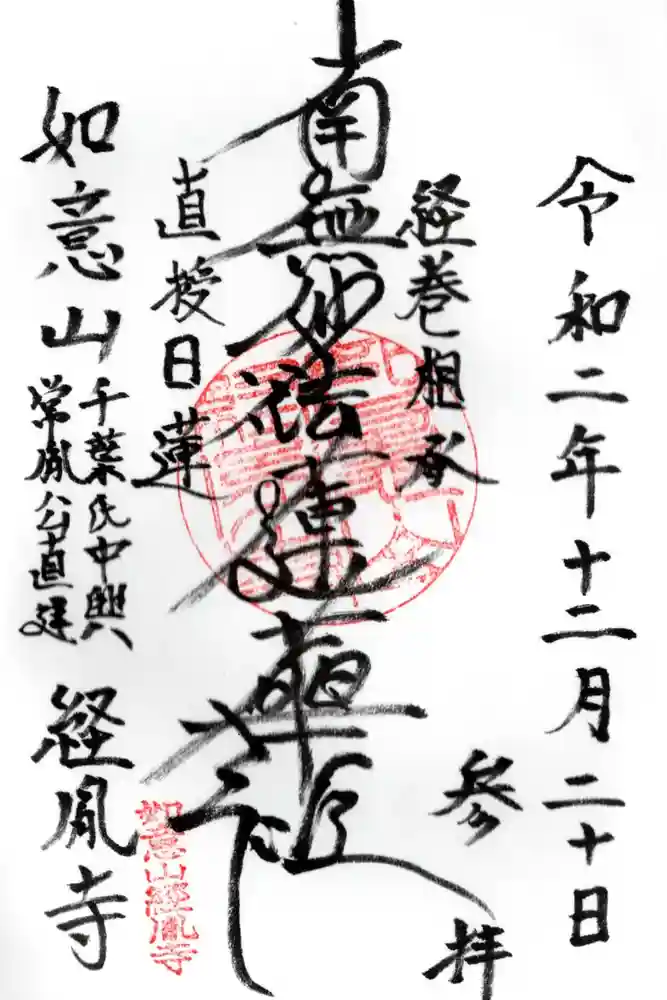 令和二年十二月二十日
参拝
経巻相承
南無妙法蓮華経
直授日蓮
如意山
千葉氏中興
常胤公直建
経胤寺
如意山經胤寺